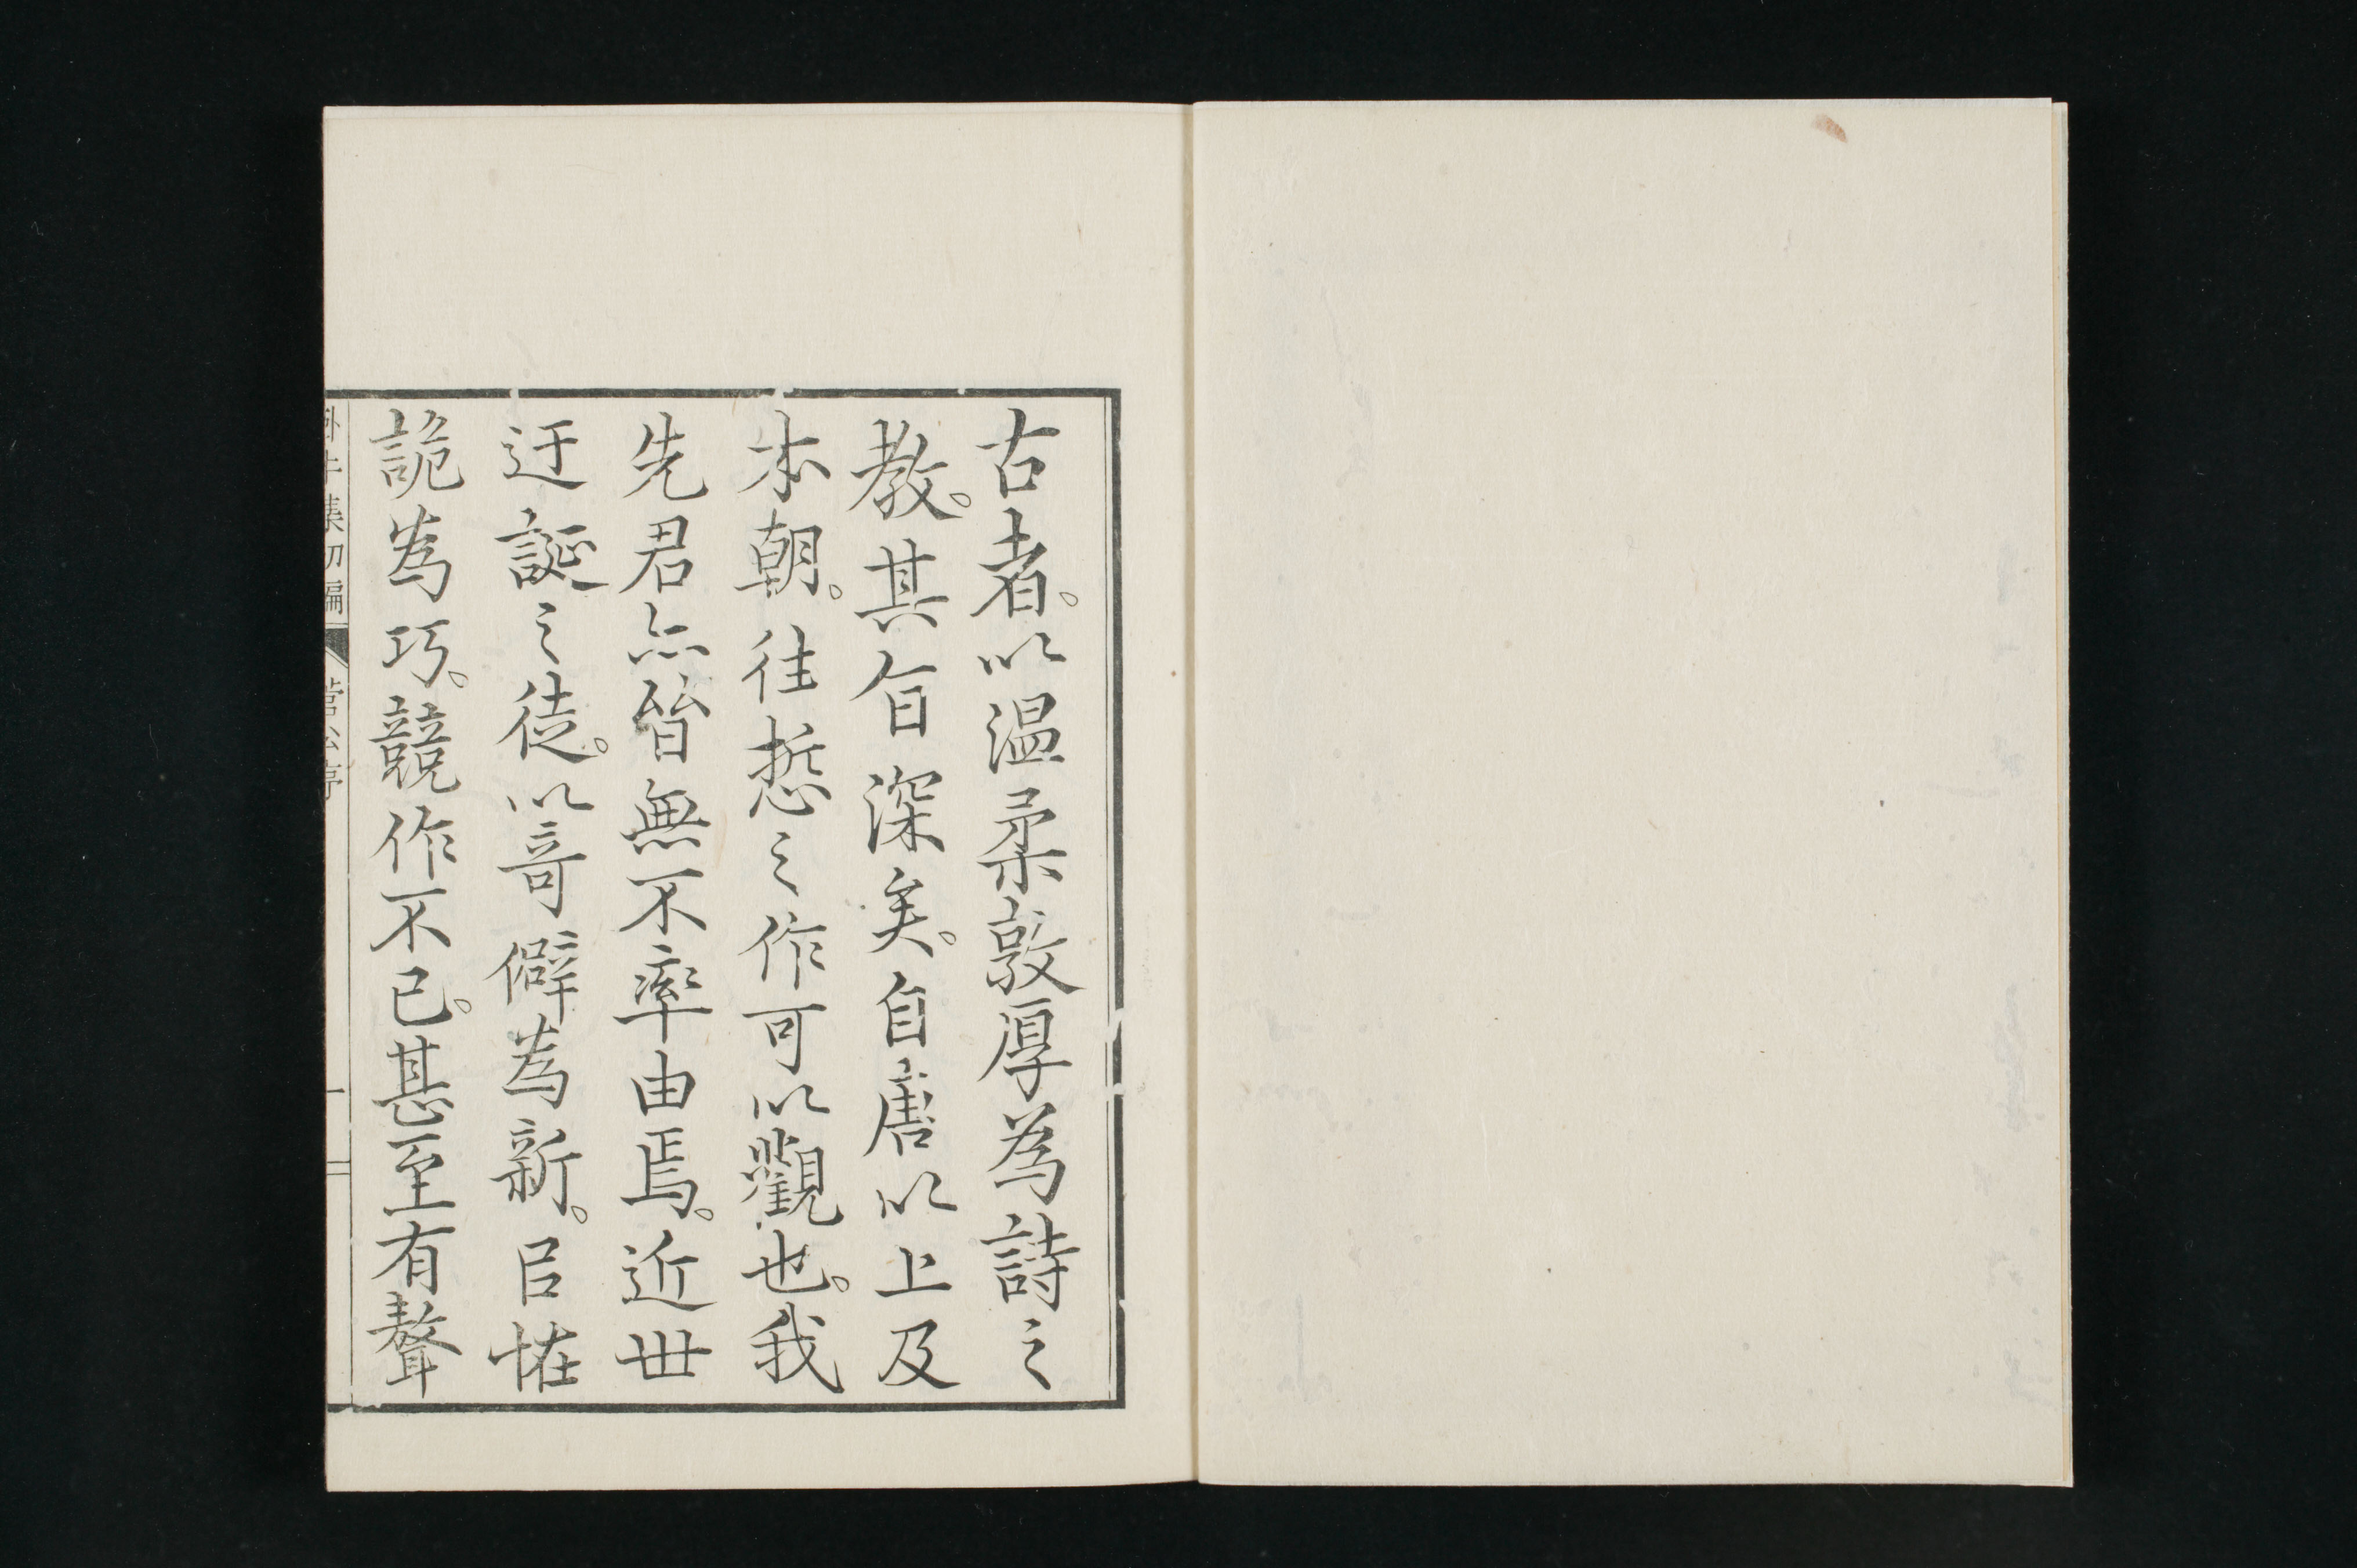 古者。以温柔敦厚為詩之
教。其旨深矣。自唐以上及
本朝。往悊之作可以觀也。我
先君亦皆無不率由焉。近世
迂誕之徒。以竒僻為新。㠯恠
詭為巧。競作不已。甚至有聱
集初編